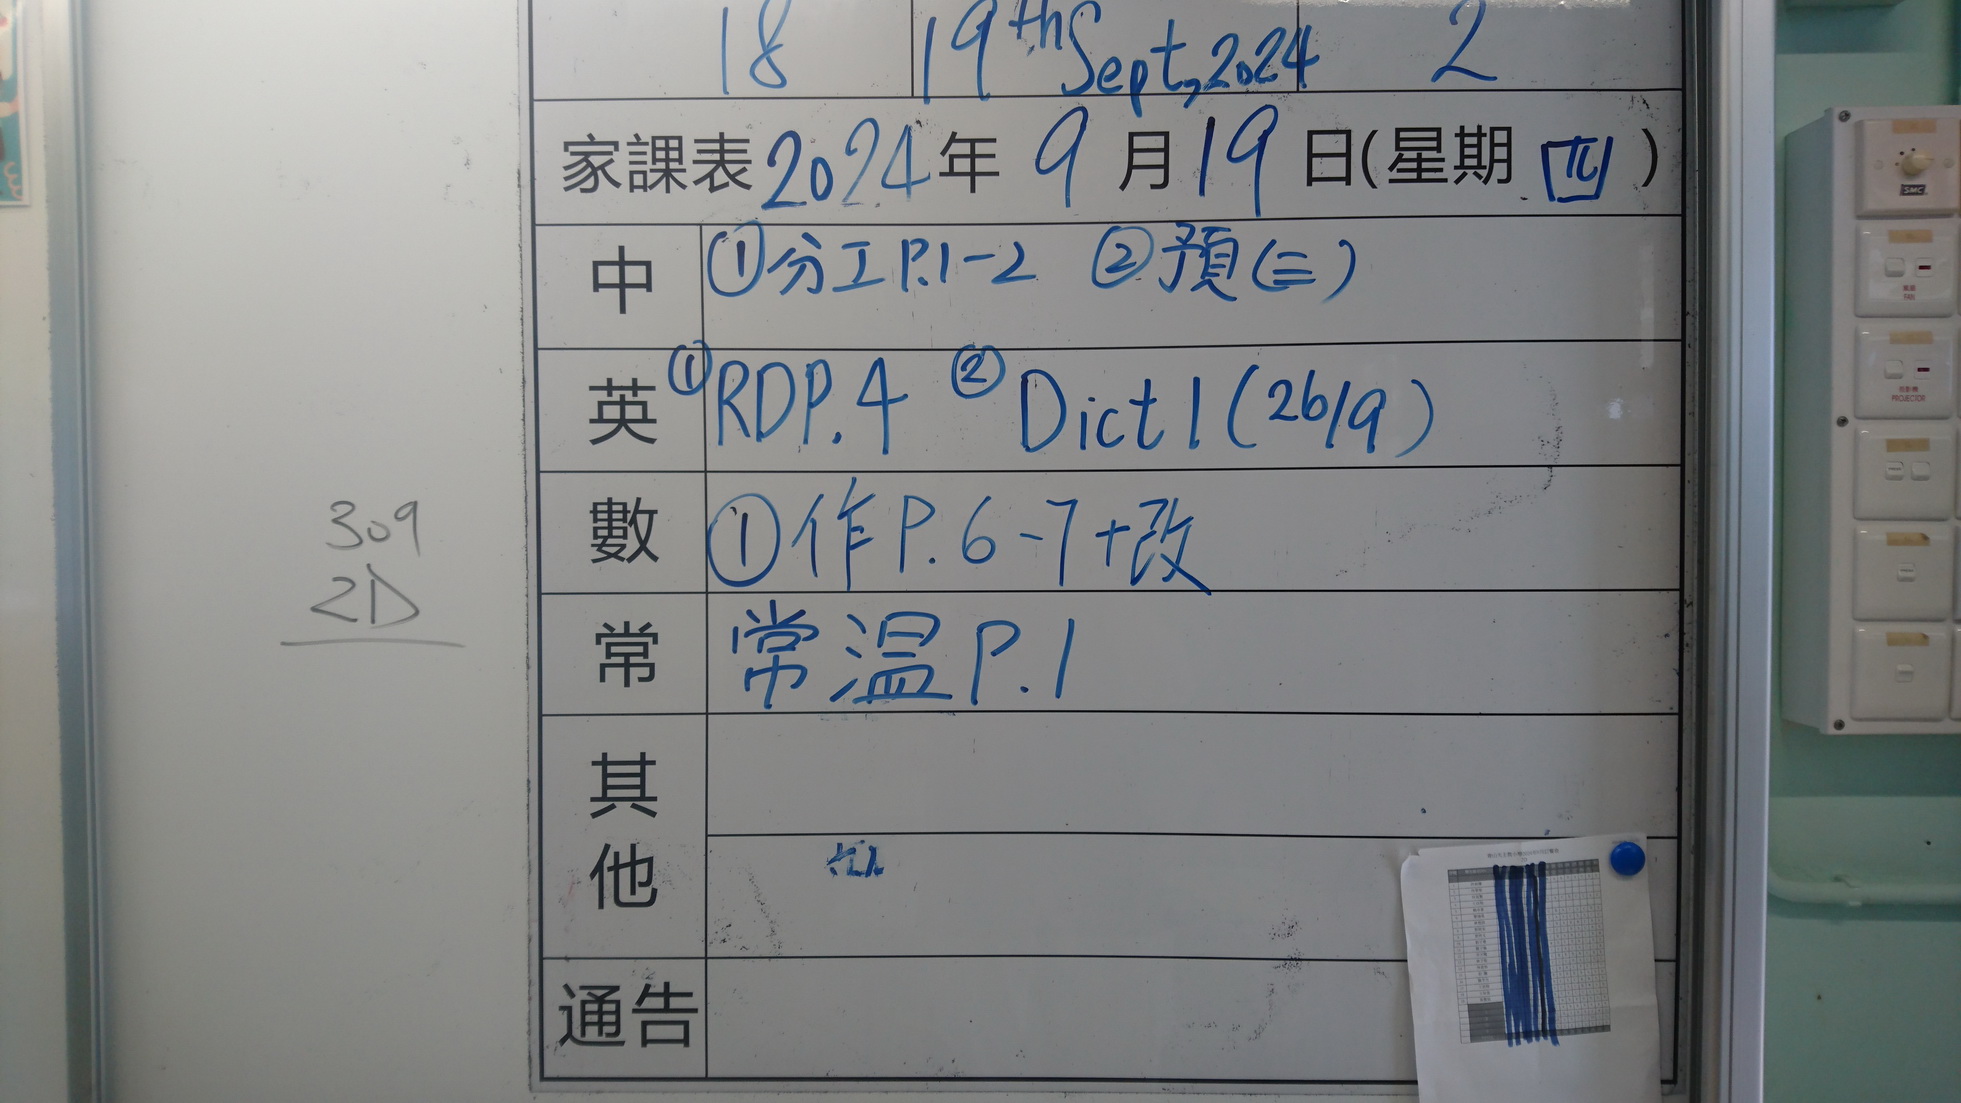 18 19th Sept, 2024 2
家課表 2024年 9月19日(星期四)
中 ①分工P.1-2 ②預(三)
英 ①RDP.4 ②Dict 1 (26/9)
數 ①作P.6-7+改
常 常溫P.1
其他
通告
309
2D
SMC
FAN
PROJECTOR